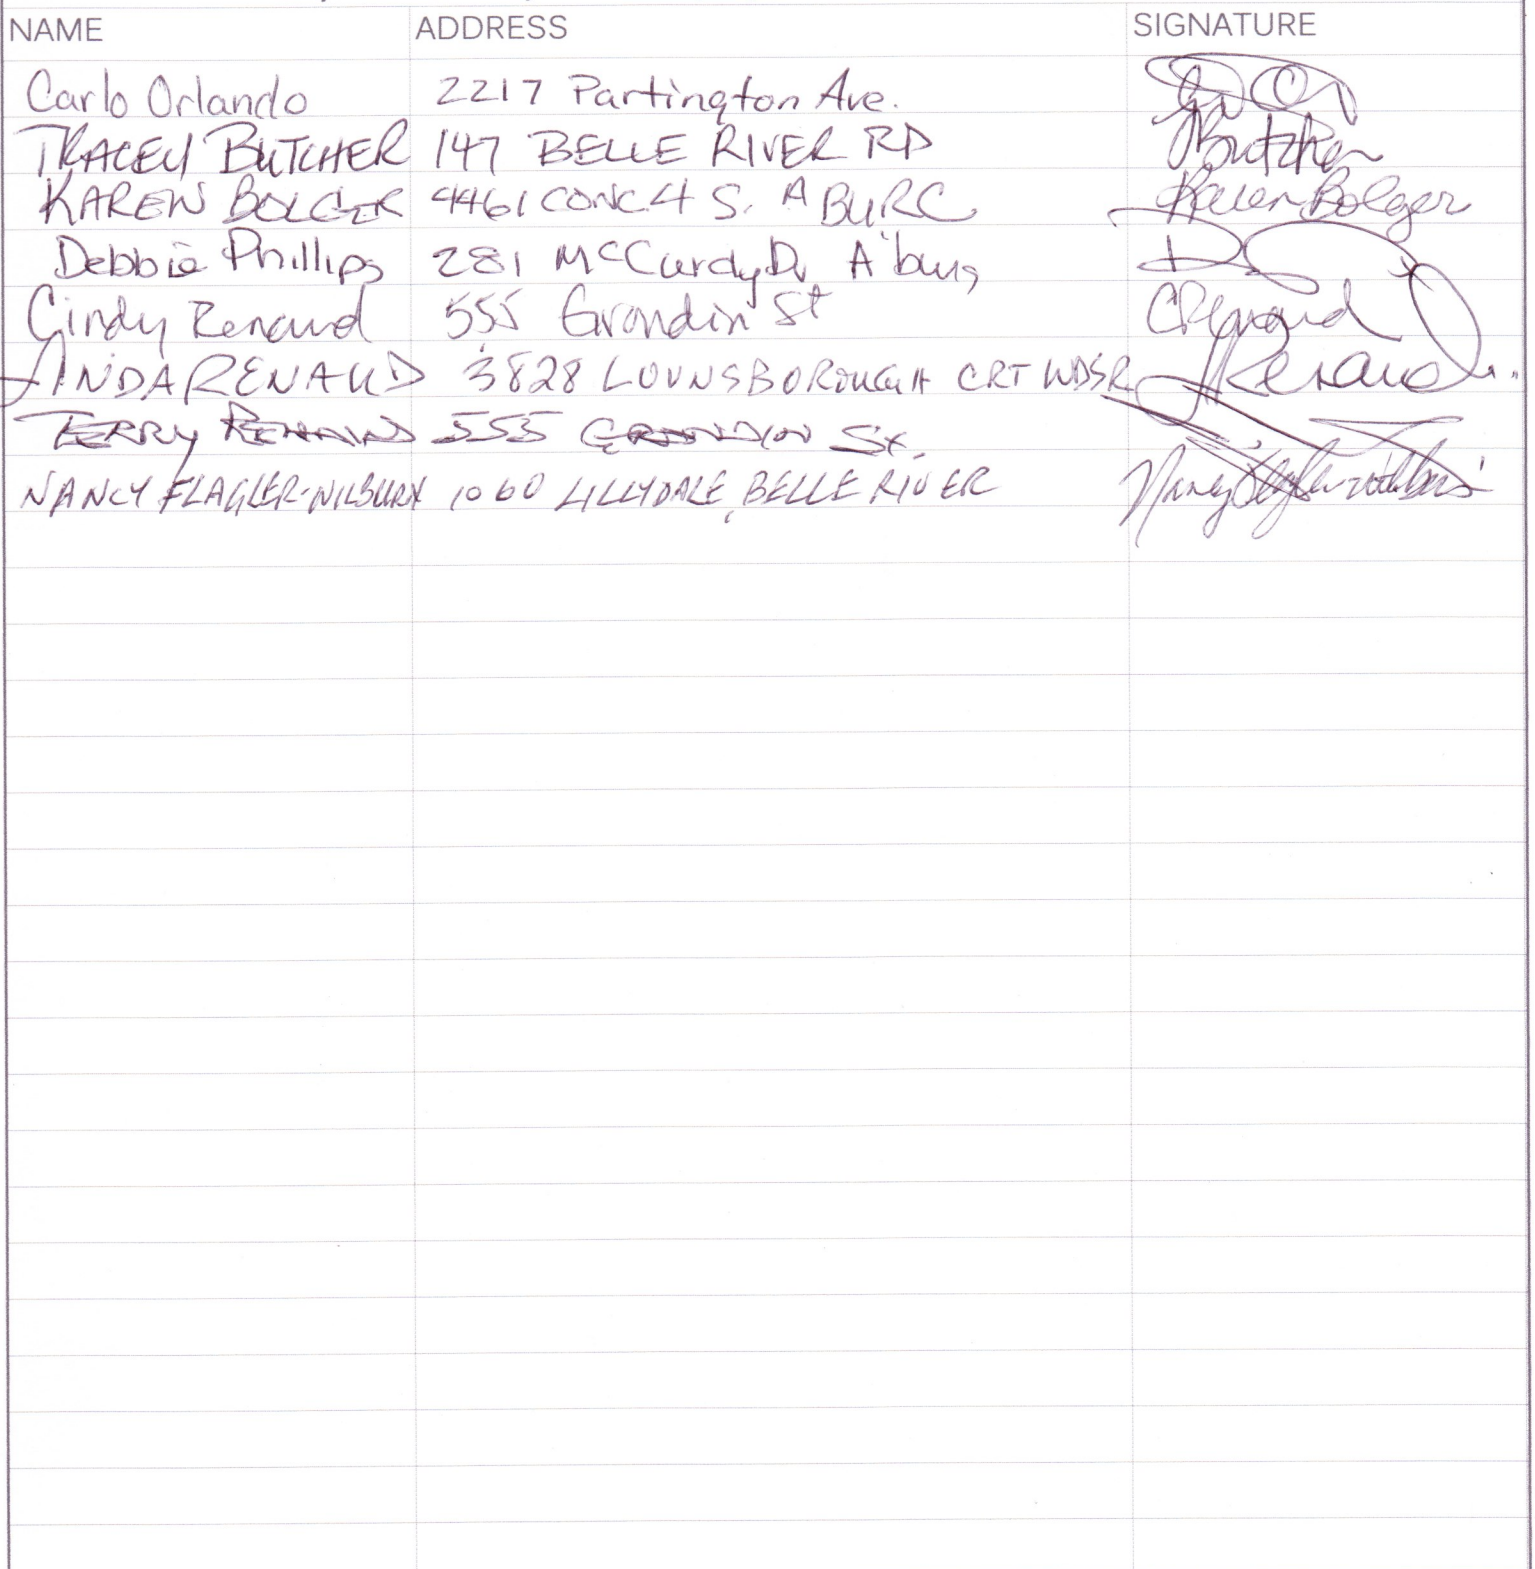 NAME ADDRESS SIGNATURE
Carlo Orlando 2217 Partington Ave.
TRACEY BUTCHER 147 BELLE RIVER RD JButcher
KAREN BOLGER 4461 CONC 4 S. A'BURG Karen Bolger
Debbie Phillips 281 McCurdy Dr A'burg
Cindy Renaud 555 Grondin St CRenaud
LINDA RENAUD 3828 LOUNSBOROUGH CRT WDSR LRenaud
TERRY RENAUD 555 GRONDIN St.
NANCY FLAGLER-WILBURN 1060 LILLYDALE, BELLE RIVER Nancy Flagler-Wilburn